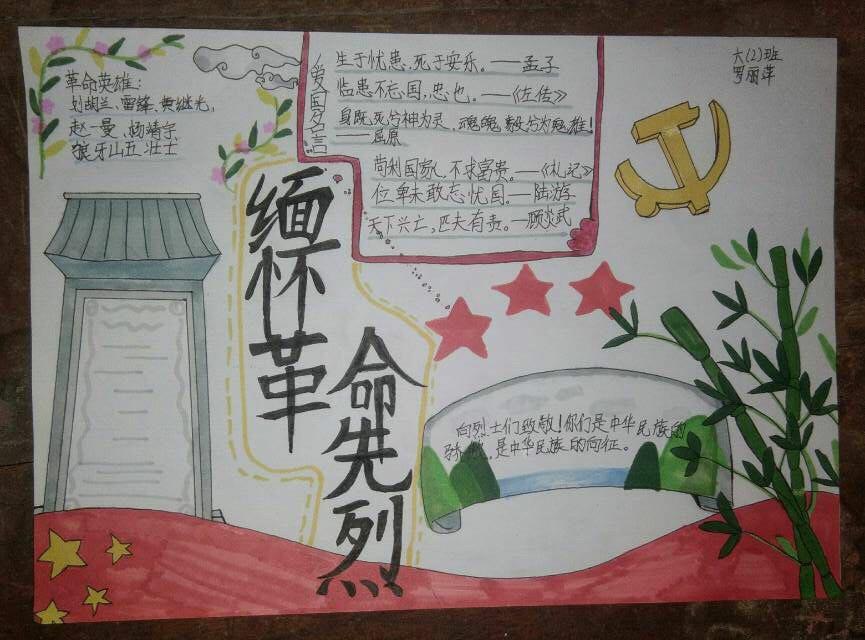 革命英雄:
刘胡兰、雷锋、黄继光,
赵一曼、杨靖宇
狼牙山五壮士
爱国名言
生于忧患,死于安乐。——孟子
临患不忘国,忠也。——《左传》
身既死兮神为灵,魂魄毅兮为鬼雄!
——屈原
苟利国家,不求富贵。——《礼记》
位卑未敢忘忧国。——陆游
天下兴亡,匹夫有责。—顾炎武
六(2)班
罗丽萍
缅怀革
命先烈
向烈士们致敬!你们是中华民族的
是中华民族的向征。